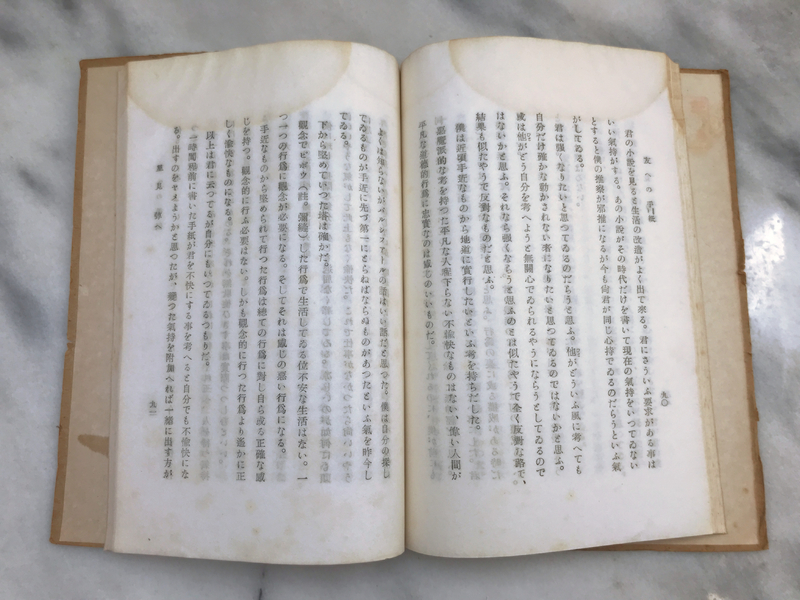 友への手紙
九〇
君の小説を見ると生活の改造がよく出て來る。君にさういふ要求がある事は
いい氣持がする。あの小説がその時代だけを書いて現在の氣持をいつてゐない
とすると僕の推察が邪推になるが今も尙君が同じ心持でゐるのだらうといふ氣
がしてゐる。
君は強くなりたいと思つてゐるのだらうと思ふ。他がどういふ風に考へても
自分だけ確かな動かされない者になりたいと思つてゐるのではないかと思ふ。
或は他がどう自分を考へようと無關心でゐられるやうにならうとしてゐるので
はないかと思ふ。それなら強くならうと思ふのとは似たやうで全く反對な路で、
結果も似たやうで反對なものだと思ふ。
僕は近頃手近なものから地道に實行したいといふ考を持ちだした。
惡魔派的な考を持つた平凡な人程下らない不愉快なものはない、偉い人間が
平凡な道德的行爲に忠實なのは感じのいいものだ。
よくは知らないがベルレエヌの話はいい話だと思つた。僕は自分の探し
てゐるものが手近に先づ第一にとらねばならぬものがあつたといふ氣を昨今し
てゐる。
下から堅めていつた塔は確かだ。
觀念でビボウ(註。彌縫)した行爲で生活してゐる位不安な生活はない。一
つ一つの行爲に觀念が必要になる。そしてそれは感じの惡い行爲になる。
手近なものから堅められて行つた行爲は總ての行爲に對し自ら或る正確な感
じを持つ。觀念的に行ふ必要はない。しかも觀念的に行つた行爲より遙かに正
しく愉快なものになる。
以上は君に云つてるが自分にもいつてゐるつもりだ。
一時間程前に書いた手紙が君を不快にする事を考へると自分でも不愉快にな
る。出すのをやめようかと思つたが、變つた氣持を附加へれば一緖に出す方が
九一